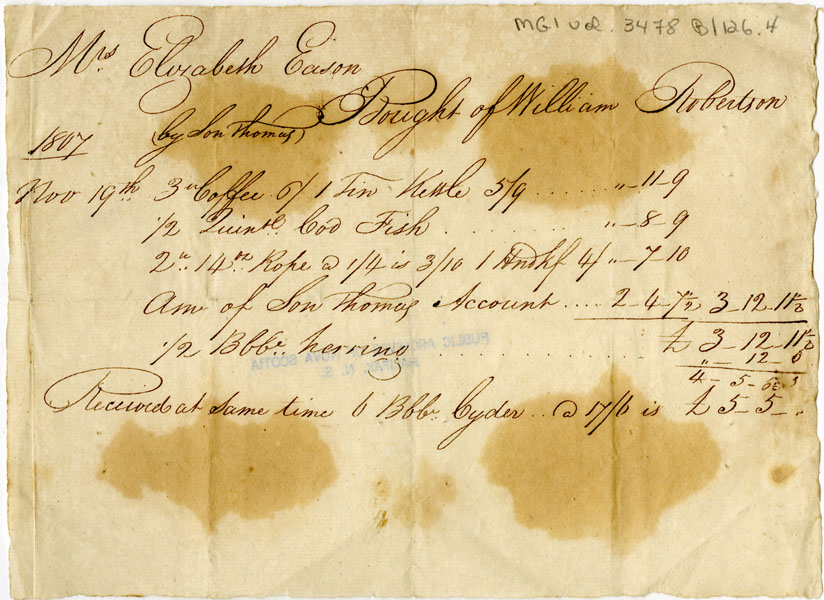 MG1 vol. 3478 B/126.4
Mrs Elizabeth Eason
Bought of William Robertson
1807 (by Son Thomas)
Nov 19th 3 lb Coffee 6/ 1 Tin Kettle 5/9 ...... " - 11 - 9
1/2 Quintl Cod Fish ........ " - 8 - 9
2 lb 14 oz Rope @ 1/4 is 3/10 1 Hndkf 4/ " - 7 - 10
Am of Son Thomas Account .... 2 - 4 - 7 1/2 3 - 12 - 11 1/2
£ 3 - 12 - 11 1/2
1/2 Bbbl herring ............ " - 12 - 6
PUBLIC ARCHIVES OF NOVA SCOTIA
HALIFAX, N. S.
4 - 5 - 5
Received at same time 6 Bbbl Cyder .. @ 17/6 is £ 5 5 - "